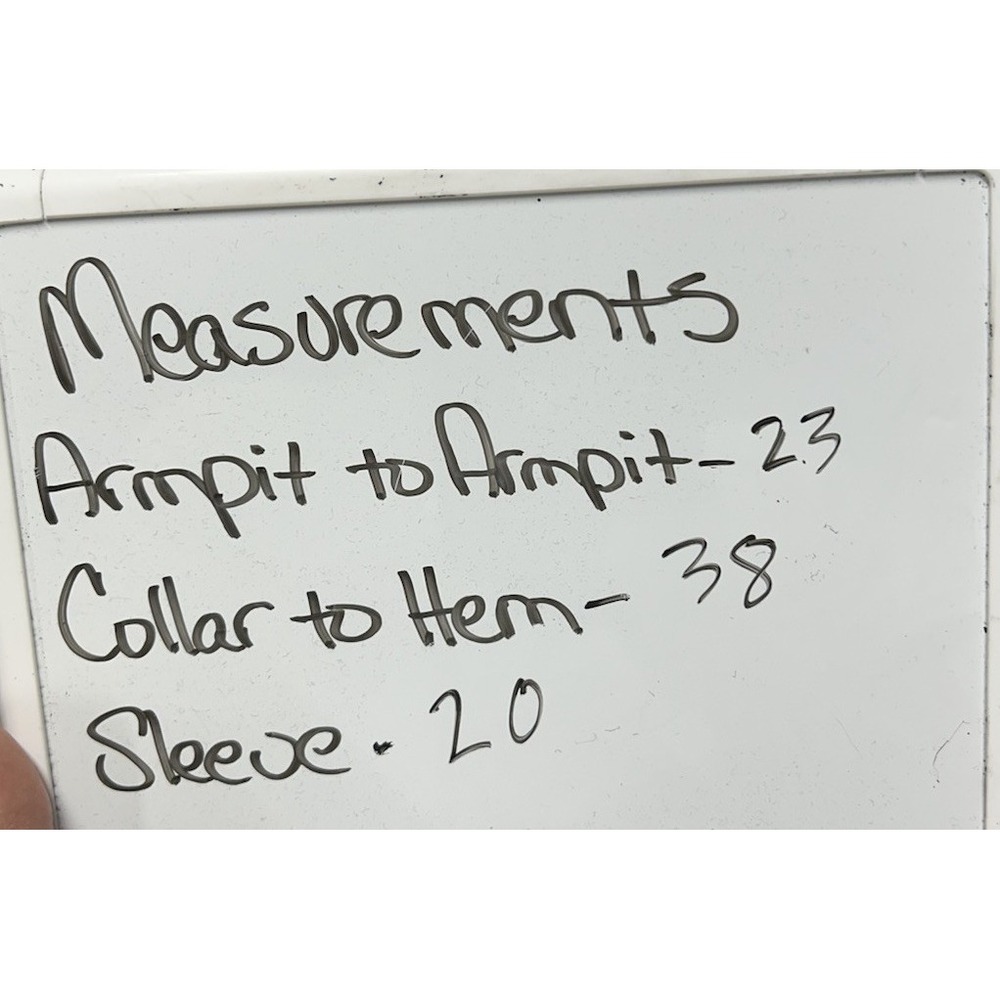 Measurements
Armpit to Armpit - 23
Collar to Hem - 38
Sleeve - 20